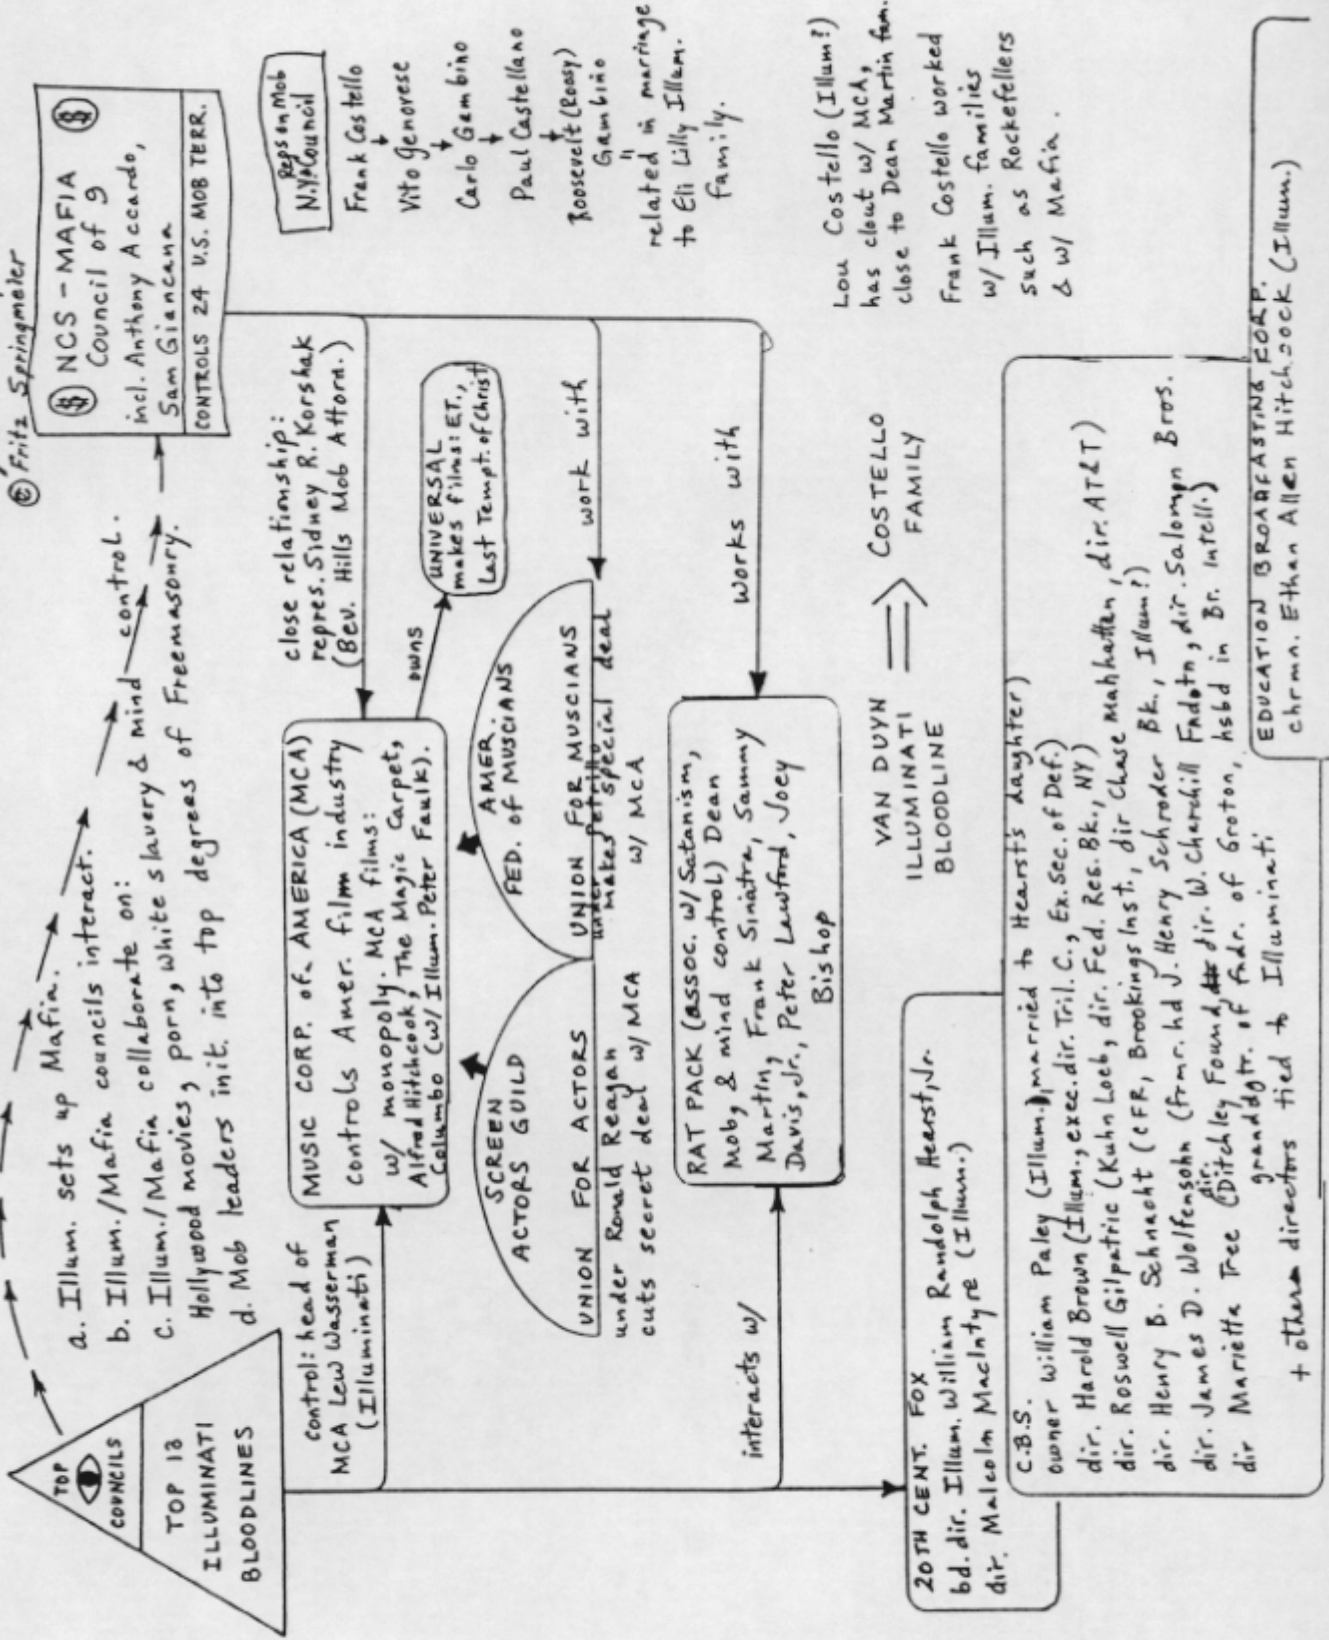 © Fritz Springmeier
TOP
COUNCILS
TOP 13
ILLUMINATI
BLOODLINES
a. Illum. sets up Mafia.
b. Illum./Mafia councils interact.
c. Illum./Mafia collaborate on:
Hollywood movies, porn, white slavery & mind control.
d. Mob leaders init. into top degrees of Freemasonry.
($) NCS - MAFIA ($)
Council of 9
incl. Anthony Accardo,
Sam Giancana
CONTROLS 24 U.S. MOB TERR.
Reps on Mob
N.Y. Council
Frank Costello
Vito Genovese
Carlo Gambino
Paul Castellano
Roosevelt (Roosy)
Gambino
related in marriage
to Eli Lilly Illum.
family.
control: head of
MCA Lew Wasserman
(Illuminati)
MUSIC CORP. of. AMERICA (MCA)
Controls Amer. film industry
w/ monopoly. MCA films:
Alfred Hitchcook, The Magic Carpet,
Columbo (w/ Illum. Peter Faulk).
close relationship:
repres. Sidney R. Korshak
(Bev. Hills Mob Attorn.)
owns
UNIVERSAL
makes films: ET.,
Last Tempt. of Christ
SCREEN
ACTORS GUILD
UNION FOR ACTORS
under Ronald Reagan
cuts secret deal w/ MCA
AMER.
FED. of MUSCIANS
UNION FOR MUSCIANS
under Petrillo
makes special deal
w/ MCA
work with
interacts w/
RAT PACK (assoc. w/ Satanism,
Mob, & mind control) Dean
Martin, Frank Sinatra, Sammy
Davis, Jr., Peter Lawford, Joey
Bishop
works with
Lou Costello (Illum?)
has clout w/ MCA,
close to Dean Martin fam.
Frank Costello worked
w/ Illum. families
such as Rockefellers
& w/ Mafia.
VAN DUYN
ILLUMINATI
BLOODLINE
COSTELLO
FAMILY
20TH CENT. FOX
bd. dir. Illum. William Randolph Hearst, Jr.
dir. Malcolm MacIntyre (Illum.)
C.B.S.
owner William Paley (Illum.), married to Hearst's daughter)
dir. Harold Brown (Illum., exec. dir. Tril. C., Ex. Sec. of Def.)
dir. Roswell Gilpatric (Kuhn Loeb, dir. Fed. Res. Bk., NY)
dir. Henry B. Schnacht (CFR, Brookings Inst., dir Chase Manhattan, dir. AT&T)
dir. James D. Wolfensohn (frmr. hd J. Henry Schroder Bk., Illum?)
dir Marietta Tree (dir. Ditchley Found, dir. W. Churchill Fndatn, dir. Salomon Bros.
granddgtr. of fndr. of Groton, hsbd in Br. Intell.)
+ other directors tied to Illuminati
EDUCATION BROADFASTING CORP.
chrmn. Ethan Allen Hitchcock (Illum.)